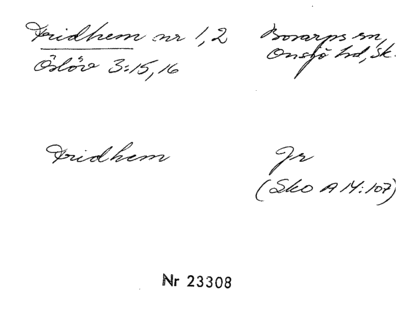 Fridhem nr 1,2
Bonarps sn,
Onsjö hd, Sk.
Öslöv 3:15,16
Fridhem
Jr
(Sko A 14:107)
Nr 23308